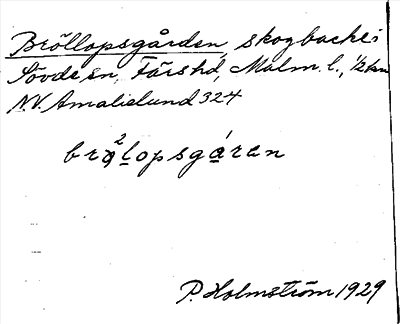 Bröllopsgården, skogbacke i
Sövde sn, Färs hd, Malm. l., ½ km
N.V. Amalielund 324
brǫ²lopsgáren
P. Holmström 1929